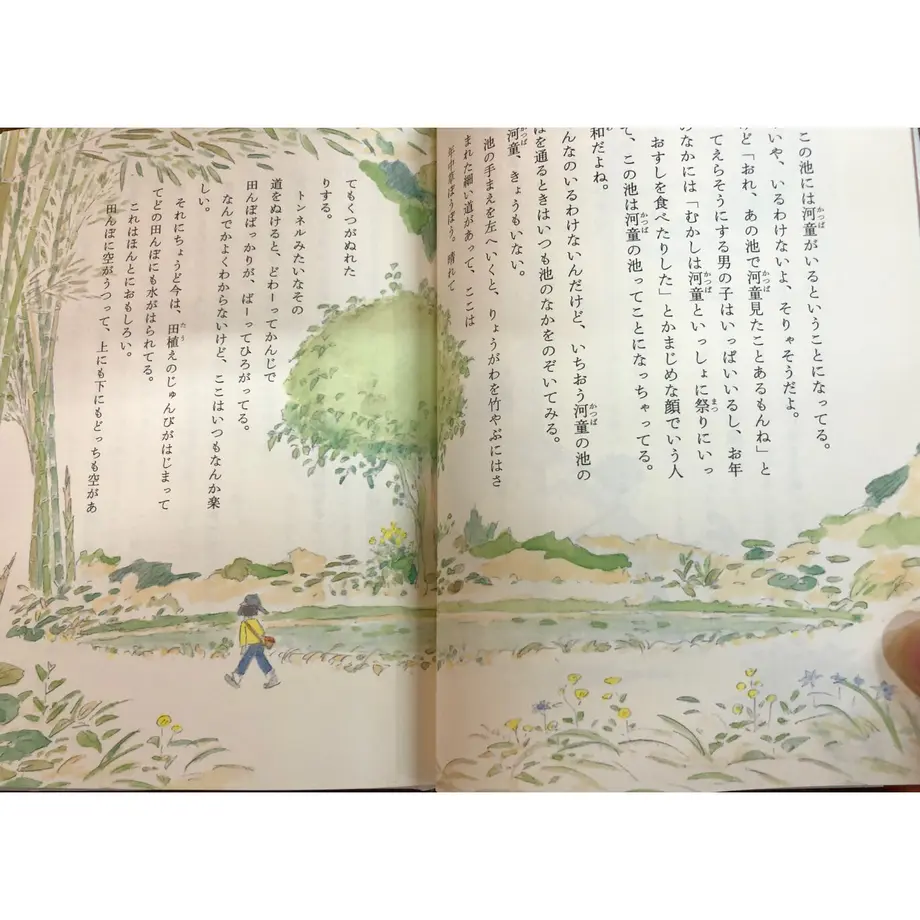 この池には河童がいるということになってる。
いや、いるわけないよ、そりゃそうだよ。
ど「おれ、あの池で河童見たことあるもんね」と
てえらそうにする男の子はいっぱいいるし、お年
のなかには「むかしは河童といっしょに祭りにいっ
おすしを食べたりした」とかまじめな顔でいう人
て、この池は河童の池ってことになっちゃってる。
和だよね。
んなのいるわけないんだけど、いちおう河童の池の
を通るときはいつも池のなかをのぞいてみる。
河童、きょうもいない。
池の手まえを左へいくと、りょうがわを竹やぶにはさ
まれた細い道があって、ここは
年中草ぼうぼう。晴れて
てもくつがぬれた
りする。
トンネルみたいなその
道をぬけると、どわーってかんじで
田んぼばっかりが、ばーってひろがってる。
なんでかよくわからないけど、ここはいつもなんか楽
しい。
それにちょうど今は、田植えのじゅんびがはじまって
てどの田んぼにも水がはられてる。
これはほんとにおもしろい。
田んぼに空がうつって、上にも下にもどっちも空があ